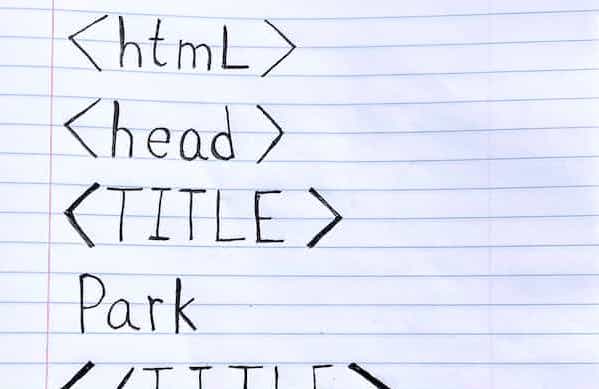 <htmL>
<head>
<TITLE>
Park
</TITLE>